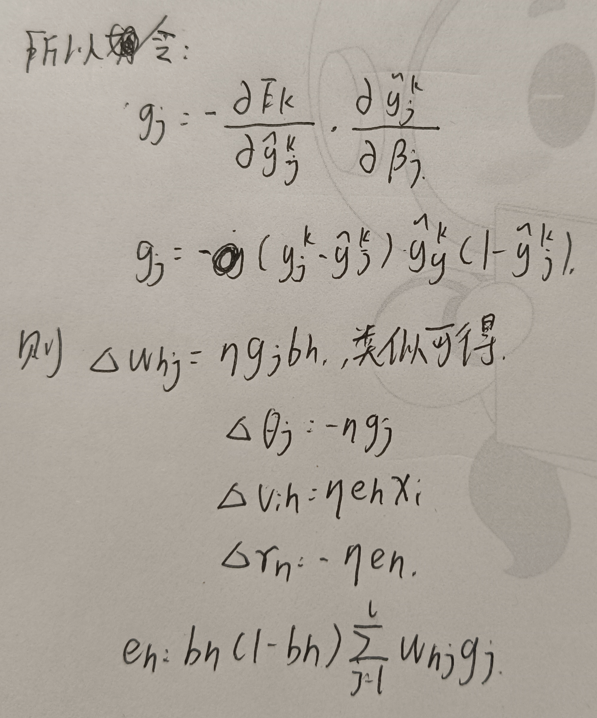 所以令:
g_j = -∂E_k/∂ŷ_j^k · ∂ŷ_j^k/∂β_j.
g_j = -(y_j^k - ŷ_j^k)·ŷ_y^k(1-ŷ_j^k).
则 Δw_hj = ηg_jb_h., 类似可得.
Δθ_j = -ηg_j
Δv_ih = ηe_hx_i
Δr_h = -ηe_h.
e_h = b_h(1-b_h)∑_{j=1}^{l} w_hjg_j.